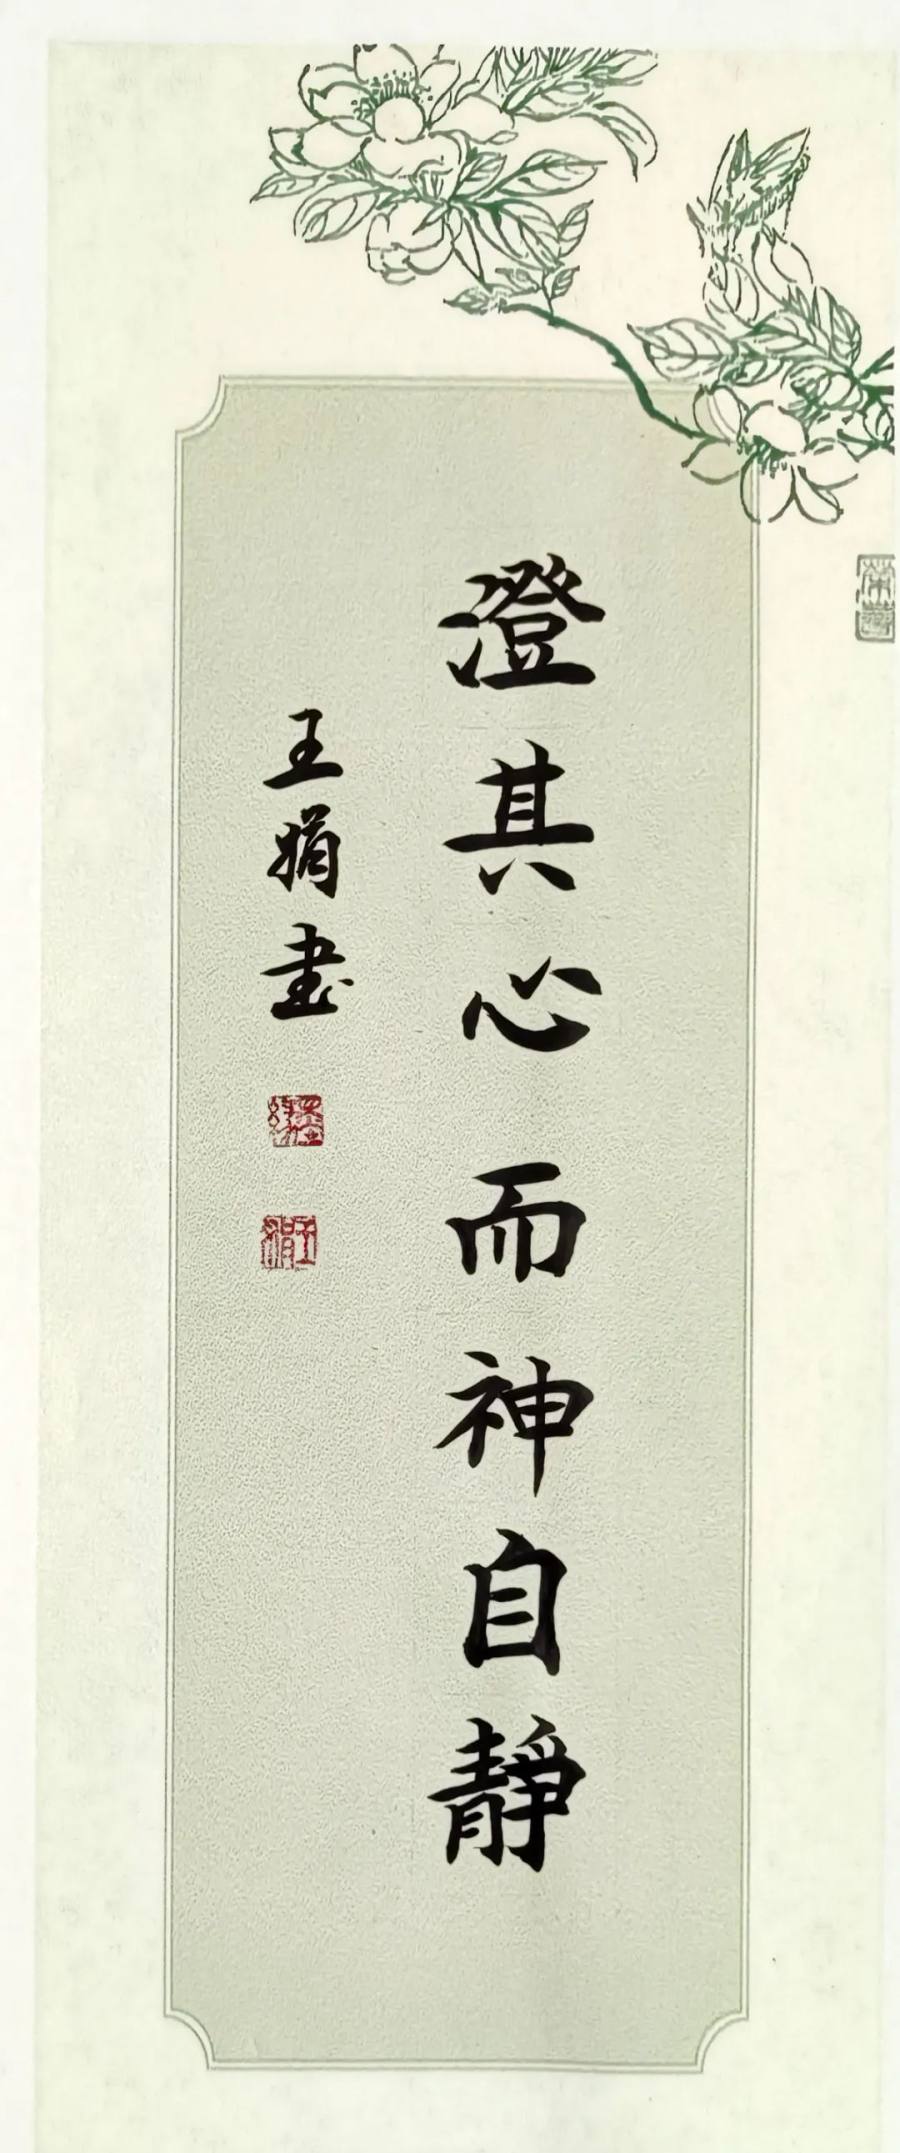 澄其心而神自靜
王娟書